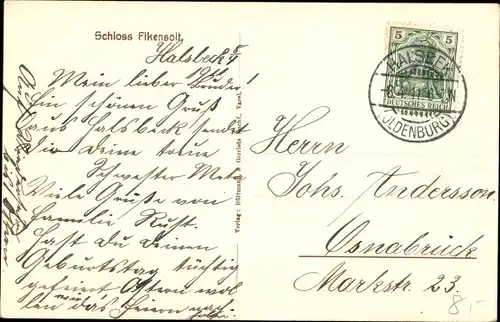 Schloss Fikensolt.
Halsbek 5/4
1911
Mein lieber Bruder!
Ein schönen Gruß
aus Halsbeck sendet
dir deine treue
Schwester Meta
Viele Grüße von
Familie Rust.
Hast du Deinen
Geburtstag tüchtig
gefeiert Ostern wol
len wir das Feiern nach
Verlag: Hültmann & Gerriets Nachf., Varel.
5 5
DEUTSCHES REICH
HALSBEK
(OLDENBURG)
Herrn
Johs. Andersson.
Osnabrück
Markstr. 23.
8,-